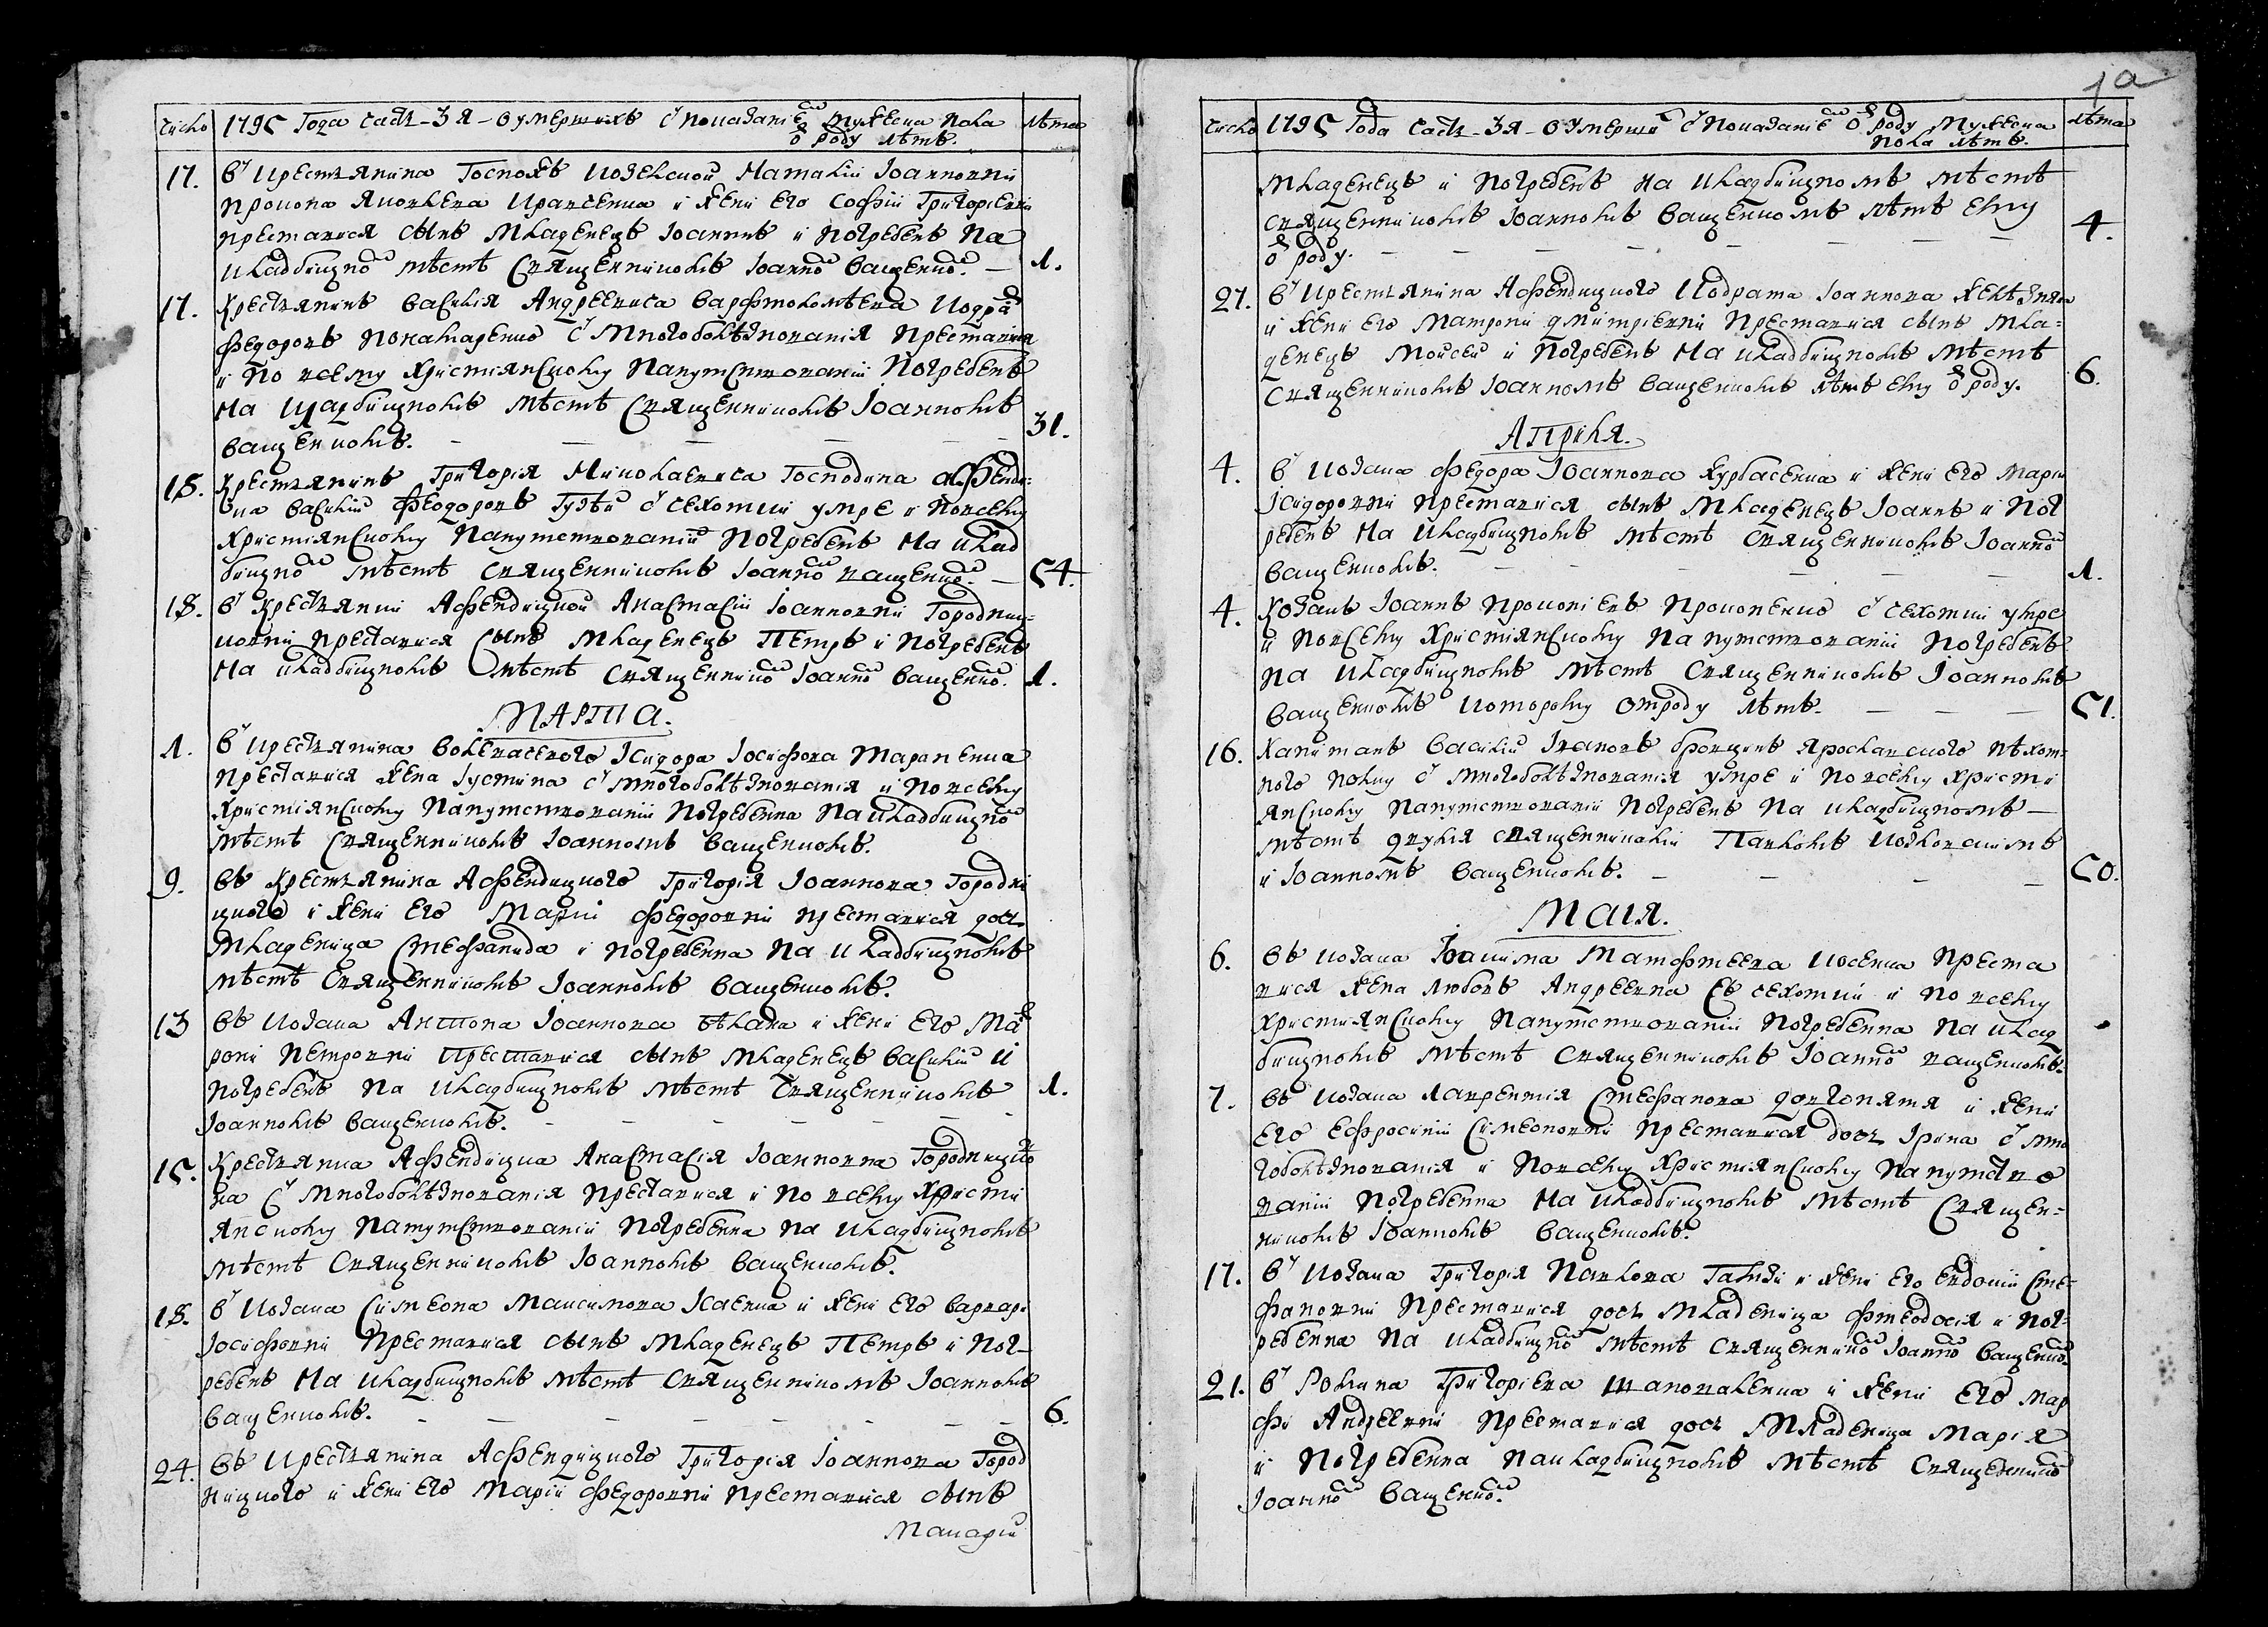 число
1795 года часть 3я о умершихъ съ показаниемъ мужеска пола
отъ роду лѣтъ.
лѣта
17. въ крестьянина госпожѣ Козелской Наталии Іоанновни
Прокопа Яковлева Кравченка и жени его Софіи Григориевни
преставися сынъ младенецъ Іоаннъ и погребенъ на
кладбищномъ мѣстѣ священникомъ Іоанномъ Ващенкомъ. — 1.
17. Крестьянинъ Василия Андреевича Варфтоломѣева Кодратъ
Федоровъ с многоболѣзнования преставися
и по всему християнскому напутствованіи погребенъ
на кладбищномъ мѣстѣ священникомъ Іоанномъ
Ващенкомъ. — 31.
18. Крестьянинъ Григория Николаевича господина
Василий Феодоровъ с сухоти умре и по всему
християнскому напутствованіи погребенъ на клад
бищномъ мѣстѣ священникомъ Іоанномъ Ващенкомъ. — 54.
18. въ крестьянки Афендищиной Анастасіи Іоанновни Городнищ-
ковни преставися сынъ младенецъ Петръ и погребенъ
на кладбищномъ мѣстѣ священникомъ Іоанномъ Ващенкомъ. 1.
Марта.
1. въ крестьянина Исидора Іосифова Мараненка
преставися жена Іустина с многоболѣзнования и по всему
християнскому напутствованіи погребенна на кладбищномъ
мѣстѣ священникомъ Іоанномъ Ващенкомъ.
9. въ крестьянина Афендищного Григория Іоаннова Городни
щного и жени его Маріи Федоровни преставися дочь
младеница Стефанида и погребенна на кладбищномъ
мѣстѣ священникомъ Іоанномъ Ващенкомъ.
13 въ козака Антона Іоаннова и жени его Мат
рони Петровни преставися сынъ младенецъ Василий и
погребенъ на кладбищномъ мѣстѣ священникомъ 1.
Іоанномъ Ващенкомъ. —
15. Крестьянка Афендищина Анастасія Іоанновна Городнищко
ва с многоболѣзнования преставися и по всему христи
янскому напутствованіи погребенна на кладбищномъ
мѣстѣ священникомъ Іоанномъ Ващенкомъ.
18. въ козака Симеона Максимова Исаенка и жени его Варвари
Іосифовни преставися сынъ младенецъ Петръ и пог-
ребенъ на кладбищномъ мѣстѣ священникомъ Іоанномъ
Ващенкомъ. — 6.
24. въ крестьянина Афендищного Григория Іоаннова Город
нищного и жени его Маріи Федоровни преставися сынъ
Макарий
1а
число
1795 года часть 3я о умершихъ съ показаниемъ отъ роду мужеска
пола лѣтъ.
лѣта
младенецъ и погребенъ на кладбищномъ мѣстѣ
священникомъ Іоанномъ Ващенкомъ лѣтъ ему 4.
отъ роду. —
27. въ крестьянина Афендищного Кодрата Іоаннова
и жени его Матрони Дмитріевни преставися сынъ мла-
денецъ Мойсей и погребенъ на кладбищномъ мѣстѣ
священникомъ Іоанномъ Ващенкомъ лѣтъ ему отъ роду. 6.
Априля.
4. въ козака Федора Іоаннова Курбасенка и жени его Марии
Ісидоровни преставися сынъ младенецъ Іоаннъ и пог
ребенъ на кладбищномъ мѣстѣ священникомъ Іоанномъ
Ващенкомъ. — 1.
4. Козакъ Іоаннъ Прокопіевъ Прокопенко с сухоти умре
и по всему християнскому напутствованіи погребенъ
на кладбищномъ мѣстѣ священникомъ Іоанномъ
Ващенкомъ которому отроду лѣтъ. — 51.
16. Капитанъ Василий Ивановъ Ярославского пѣхот-
ного полку с многоболѣзнования умре и по всему христи
янскому напутствованіи погребенъ на кладбищномъ —
мѣстѣ двумя священниками Павломъ
и Іоанномъ Ващенкомъ. — 50.
Маія.
6. въ козака Іоакима Матфтеева преста
вися жена Любовъ Андреевна съ сухоти и по всему
християнскому напутствованіи погребенна на клад
бищномъ мѣстѣ священникомъ Іоанномъ Ващенкомъ.
7. въ козака Лаврентия Стефанова Довгопятя и жени
его Ефросинии Симеоновни преставися дочь Ірина с мно
гоболѣзнования и по всему християнскому напутство
ваніи погребенна на кладбищномъ мѣстѣ священ-
никомъ Іоанномъ Ващенкомъ.
17. въ козака Григория Павлова и жени его Евдокіи Сте-
фановни преставися дочь младеница Фтеодосія и пог-
ребенна на кладбищномъ мѣстѣ священникомъ Іоанномъ Ващенкомъ.
21. въ Романа Григориева Шаповаленка и жени его Мар
фи Андреевни преставися дочь младеница Марія
и погребенна на кладбищномъ мѣстѣ священникомъ
Іоанномъ Ващенкомъ.